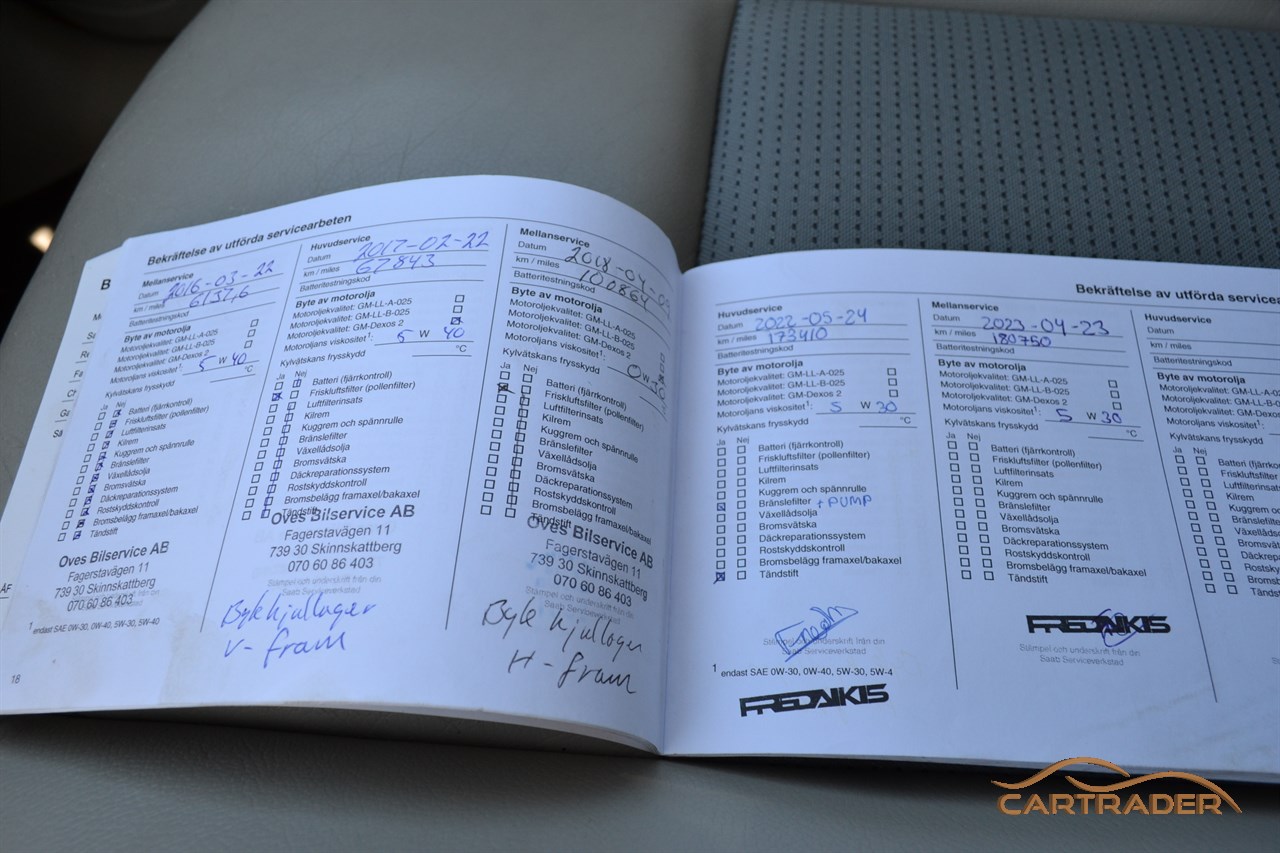 B
Bekräftelse av utförda servicearbeten
Mellanservice
Datum 2016-03-22
km / miles
Batteritestningskod
Byte av motorolja
Motoroljekvalitet: GM-LL-A-025
Motoroljekvalitet: GM-LL-B-025
Motoroljekvalitet: GM-Dexos 2
Motoroljans viskositet¹: 5 W 40
Kylvätskans frysskydd °C
Ja Nej
Batteri (fjärrkontroll)
Friskluftsfilter (pollenfilter)
Luftfilterinsats
Kilrem
Kuggrem och spännrulle
Bränslefilter
Växellådsolja
Bromsvätska
Däckreparationssystem
Rostskyddskontroll
Bromsbelägg framaxel/bakaxel
Tändstift
Oves Bilservice AB
Fagerstavägen 11
739 30 Skinnskattberg
070 60 86 403
¹ endast SAE 0W-30, 0W-40, 5W-30, 5W-40
18
Huvudservice
Datum 2017-02-22
km / miles 67843
Batteritestningskod
Byte av motorolja
Motoroljekvalitet: GM-LL-A-025
Motoroljekvalitet: GM-LL-B-025
Motoroljekvalitet: GM-Dexos 2
Motoroljans viskositet¹: 5 W 40
Kylvätskans frysskydd °C
Ja Nej
Batteri (fjärrkontroll)
Friskluftsfilter (pollenfilter)
Luftfilterinsats
Kilrem
Kuggrem och spännrulle
Bränslefilter
Växellådsolja
Bromsvätska
Däckreparationssystem
Rostskyddskontroll
Bromsbelägg framaxel/bakaxel
Tändstift
Oves Bilservice AB
Fagerstavägen 11
739 30 Skinnskattberg
070 60 86 403
Stämpel och underskrift från din
Saab Serviceverkstad
Byte hjullager
V- fram
Mellanservice
Datum 2018-04-0
km / miles 100864
Batteritestningskod
Byte av motorolja
Motoroljekvalitet: GM-LL-A-025
Motoroljekvalitet: GM-LL-B-025
Motoroljekvalitet: GM-Dexos 2
Motoroljans viskositet¹:
Kylvätskans frysskydd 0 W 30
Ja Nej
Batteri (fjärrkontroll)
Friskluftsfilter (pollenfilter)
Luftfilterinsats
Kilrem
Kuggrem och spännrulle
Bränslefilter
Växellådsolja
Bromsvätska
Däckreparationssystem
Rostskyddskontroll
Bromsbelägg framaxel/bakaxel
Tändstift
Oves Bilservice AB
Fagerstavägen 11
739 30 Skinnskattberg
070 60 86 403
Stämpel och underskrift från din
Saab Serviceverkstad
Byte hjullager
H- fram
Bekräftelse av utförda servicea
Huvudservice
Datum 2022-05-24
km / miles 173410
Batteritestningskod
Byte av motorolja
Motoroljekvalitet: GM-LL-A-025
Motoroljekvalitet: GM-LL-B-025
Motoroljekvalitet: GM-Dexos 2
Motoroljans viskositet¹: 5 W 30
Kylvätskans frysskydd °C
Ja Nej
Batteri (fjärrkontroll)
Friskluftsfilter (pollenfilter)
Luftfilterinsats
Kilrem
Kuggrem och spännrulle
Bränslefilter + PUMP
Växellådsolja
Bromsvätska
Däckreparationssystem
Rostskyddskontroll
Bromsbelägg framaxel/bakaxel
Tändstift
Stämpel och underskrift från din
Saab Serviceverkstad
¹ endast SAE 0W-30, 0W-40, 5W-30, 5W-4
FREDAIKIS
Mellanservice
Datum 2023-04-23
km / miles 180750
Batteritestningskod
Byte av motorolja
Motoroljekvalitet: GM-LL-A-025
Motoroljekvalitet: GM-LL-B-025
Motoroljekvalitet: GM-Dexos 2
Motoroljans viskositet¹: 5 W 30
Kylvätskans frysskydd °C
Ja Nej
Batteri (fjärrkontroll)
Friskluftsfilter (pollenfilter)
Luftfilterinsats
Kilrem
Kuggrem och spännrulle
Bränslefilter
Växellådsolja
Bromsvätska
Däckreparationssystem
Rostskyddskontroll
Bromsbelägg framaxel/bakaxel
Tändstift
FREDAIKIS
Stämpel och underskrift från din
Saab Serviceverkstad
Mellanservice
Datum
km / miles
Batteritestningskod
Byte av motorolja
Motoroljekvalitet: G
Motoroljekvalitet: G
Motoroljekvalitet: G
Motoroljans viskositet¹
Kylvätskans frysskydd
Ja Nej
Batteri (fjärrko
Friskluftsfilter
Luftfilterinsats
Kilrem
Kuggrem o
Bränslefilter
Växellådso
Bromsväts
Däckrepa
Rostsky
Bromsb
Tändst
CARTRADER